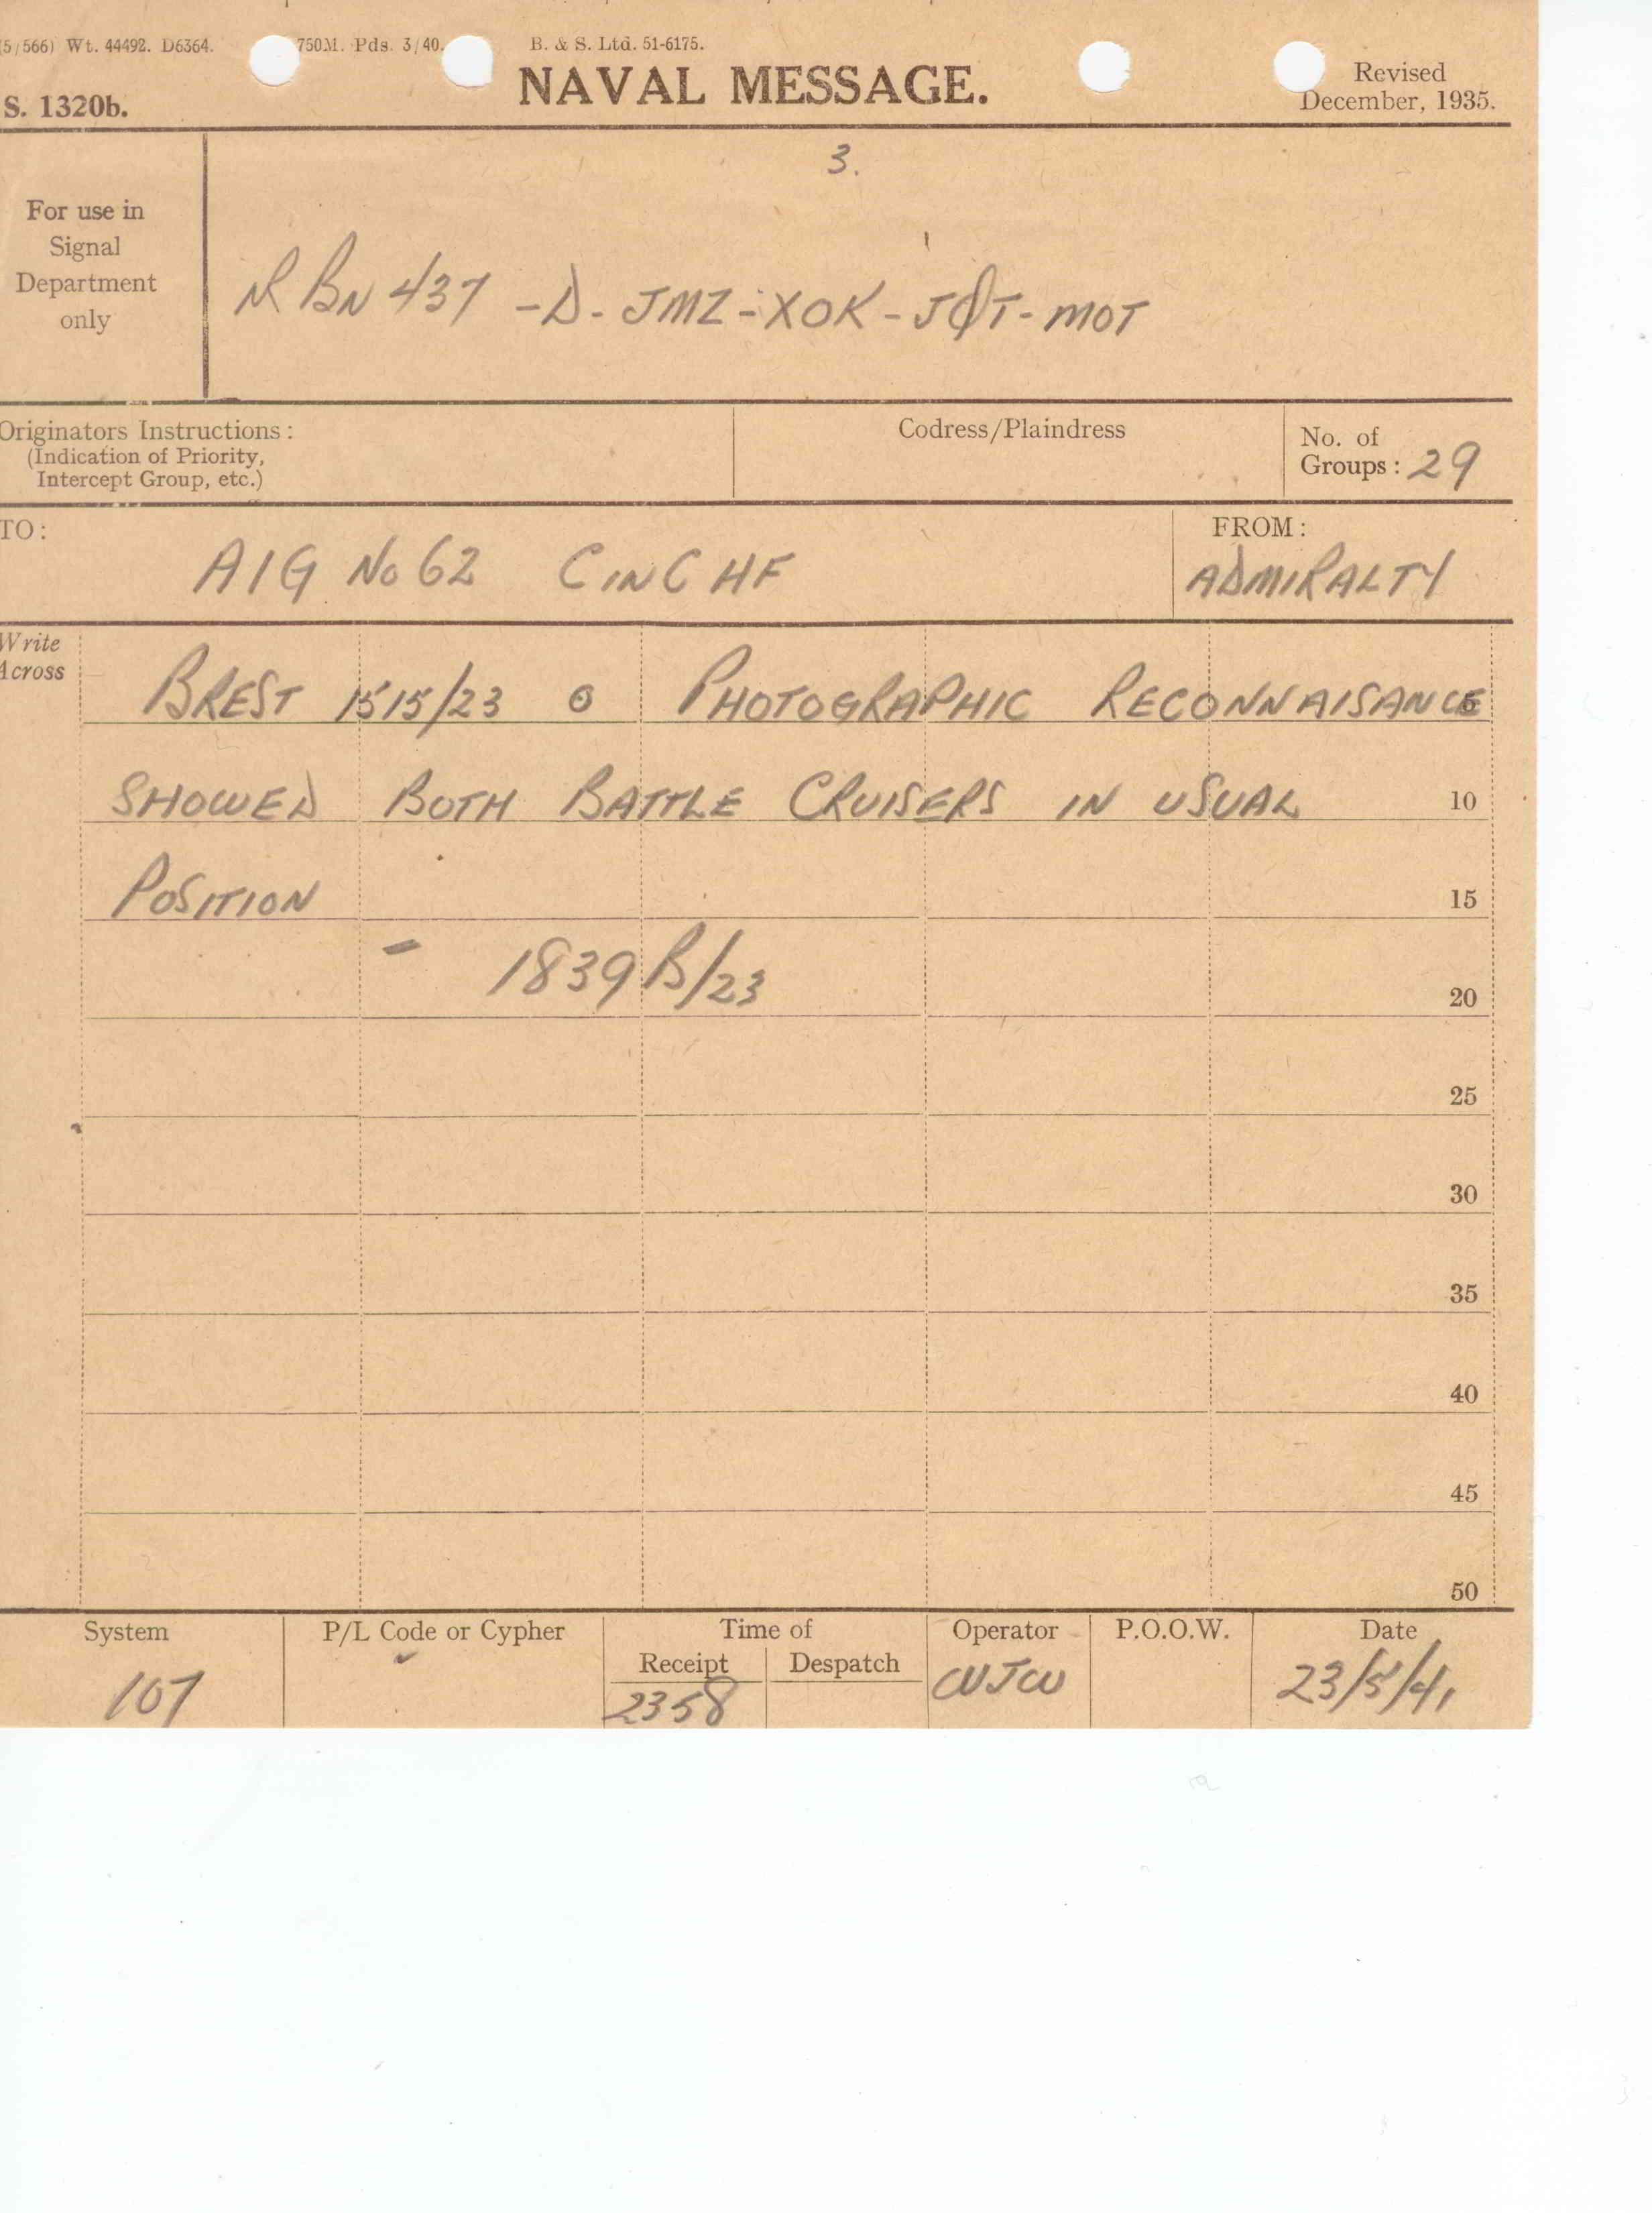 (5/566) Wt. 44492. D6364. 750M. Pds. 3/40. B. & S. Ltd. 51-6175.
NAVAL MESSAGE.
Revised
December, 1935.
S. 1320b.
3.
For use in
Signal
Department
only
BN 437 - D - JMZ - XOK - JQT - MOT
Originators Instructions:
(Indication of Priority,
Intercept Group, etc.)
Codress/Plaindress
No. of
Groups: 29
TO:
AIG No 62 C IN C HF
FROM:
ADMIRALTY
Write
Across
BREST 1515/23 PHOTOGRAPHIC RECONNAISANCE
SHOWED BOTH BATTLE CRUISERS IN USUAL 10
POSITION 15
- 1839B/23
20
25
30
35
40
45
50
System P/L Code or Cypher Time of Operator P.O.O.W. Date
Receipt Despatch
107 2358 WJW 23/5/41